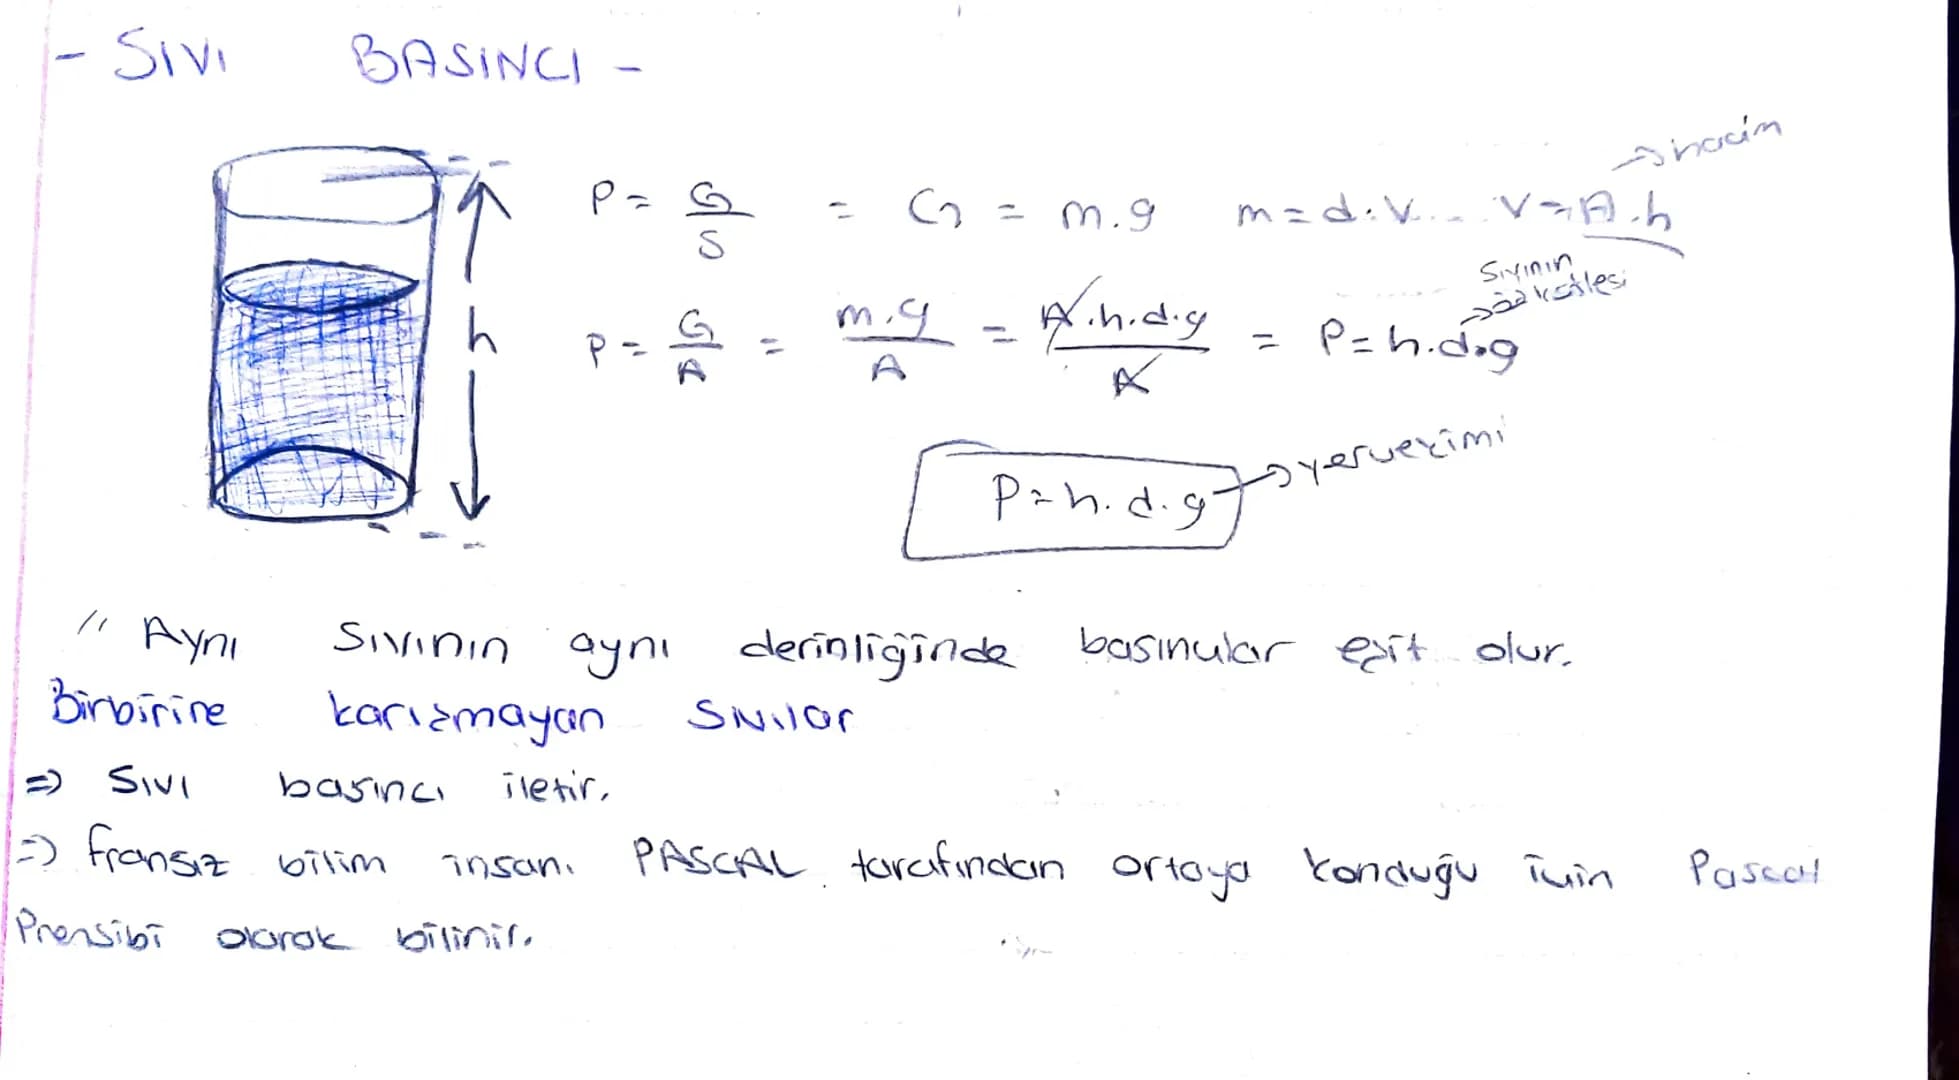 - SIVI BASINCI -
→ hacim
P = G/S = G = m.g m = d.V... V = A.h
Sıvının
→ özkütlesi
h P = G/A = m.g/A = A.h.d.g/A = P = h.d.g
P = h.d.g → yerçekimi
" Aynı sıvının aynı derinliğinde basınçlar eşit olur.
Birbirine karışmayan sıvılar
⇒ Sıvı basıncı iletir.
⇒ fransız bilim insanı PASCAL tarafından ortaya konduğu için Pascal
Prensibi olarak bilinir.